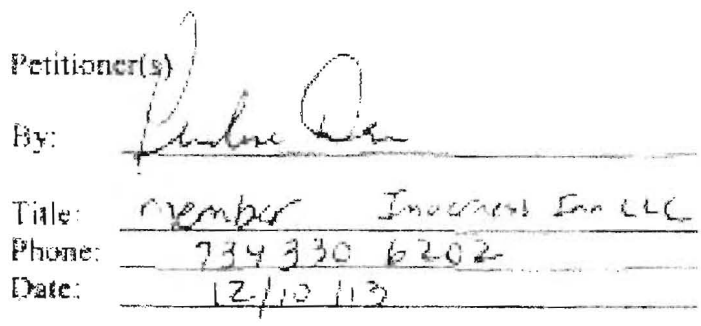 Petitioner(s)
By:
Title: member Inverness Inn LLC
Phone: 734 330 6202
Date: 12/10/13